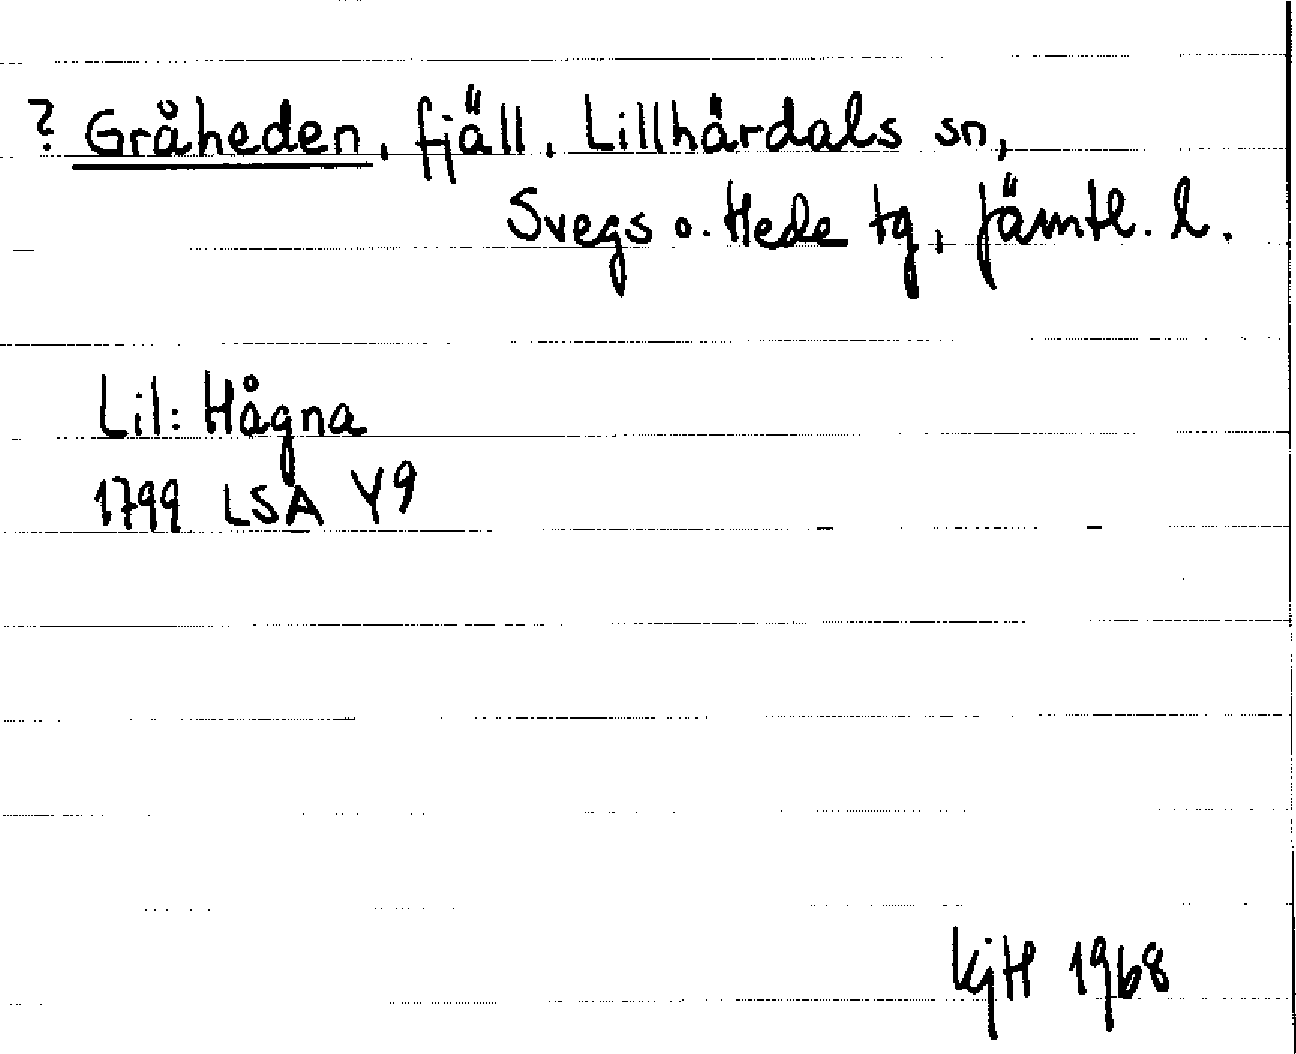 ? Gråheden, fjäll, Lillhärdals sn,
Svegs o. Hede tg, Jämtl. l.
Lil: Hågna
1799 LSA Y9
KjH 1968